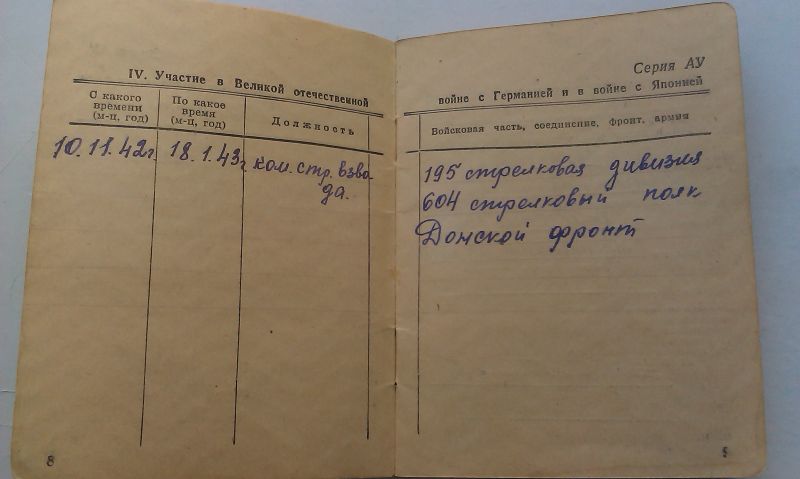 IV. Участие в Великой отечественной
С какого времени (м-ц, год)
По какое время (м-ц, год)
Должность
10.11.42г.
18.1.43г
ком. стр. взво-
да.
8
Серия АУ
войне с Германией и в войне с Японией
Войсковая часть, соединение, фронт, армия
195 стрелковая дивизия
604 стрелковый полк
Донской фронт